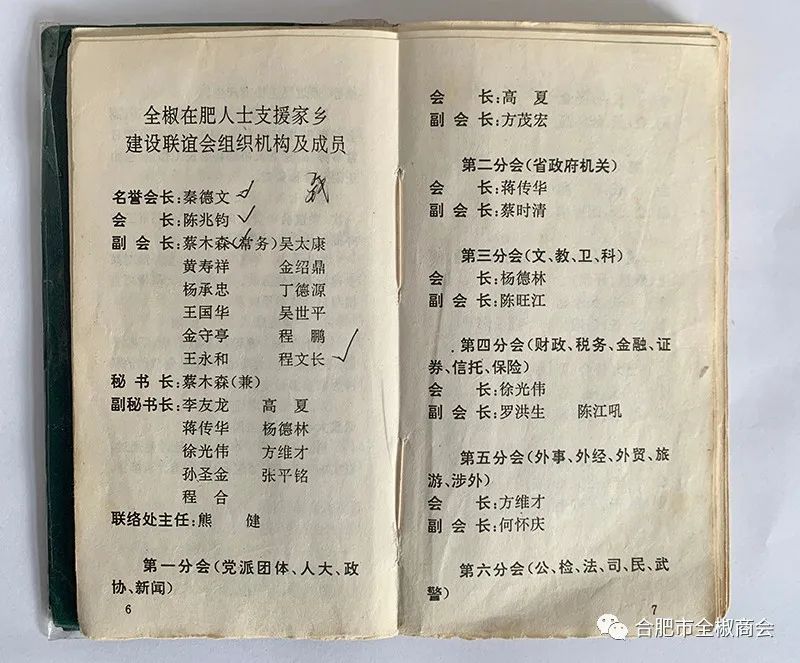 全椒在肥人士支援家乡
建设联谊会组织机构及成员
名誉会长:秦德文
会　　长:陈兆钧
副 会 长:蔡木森(常务)吴太康
黄寿祥　　金绍鼎
杨承忠　　丁德源
王国华　　吴世平
金守亭　　程　鹏
王永和　　程文长
秘 书 长:蔡木森(兼)
副秘书长:李友龙　　高　夏
蒋传华　　杨德林
徐光伟　　方维才
孙圣金　　张平铭
程　合
联络处主任:熊　　健
第一分会(党派团体、人大、政
协、新闻)
6
会　　长:高　夏
副 会 长:方茂宏
第二分会(省政府机关)
会　　长:蒋传华
副 会 长:蔡时清
第三分会(文、教、卫、科)
会　　长:杨德林
副 会 长:陈旺江
第四分会(财政、税务、金融、证
券、信托、保险)
会　　长:徐光伟
副 会 长:罗洪生　　陈江吼
第五分会(外事、外经、外贸、旅
游、涉外)
会　　长:方维才
副 会 长:何怀庆
第六分会(公、检、法、司、民、武
警)
7
合肥市全椒商会